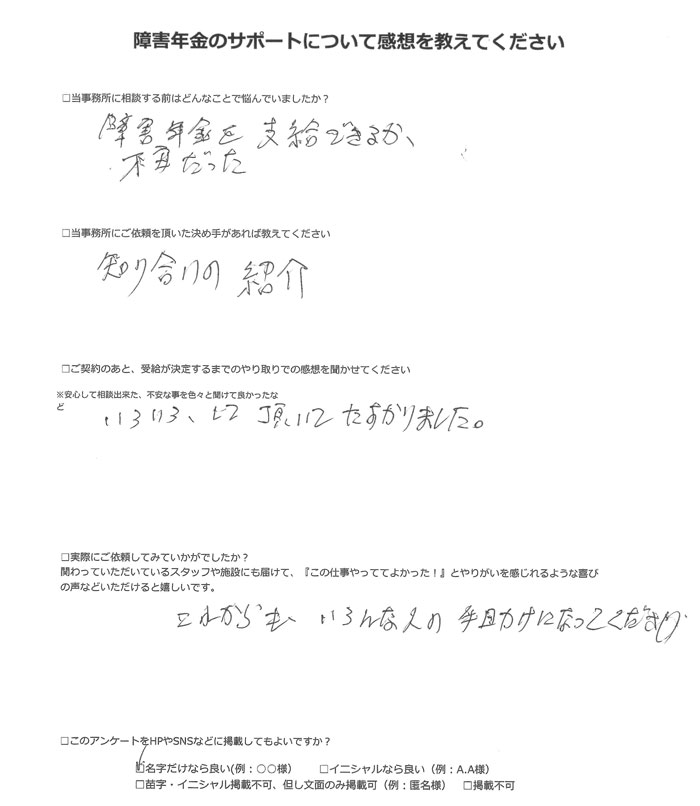 障害年金のサポートについて感想を教えてください
□当事務所に相談する前はどんなことで悩んでいましたか？
障害年金を支給できるか、
不安だった
□当事務所にご依頼を頂いた決め手があれば教えてください
知り合いの 紹介
□ご契約のあと、受給が決定するまでのやり取りでの感想を聞かせてください
※安心して相談出来た、不安な事を色々と聞けて良かったな
ど
いろいろ、して頂いて たすかりました。
□実際にご依頼してみていかがでしたか？
関わっていただいているスタッフや施設にも届けて、『この仕事やっててよかった！』とやりがいを感じれるような喜び
の声などいただけると嬉しいです。
これからも、いろんな人の 手助けになってください
□このアンケートをHPやSNSなどに掲載してもよいですか？
☑名字だけなら良い(例：○○様） □イニシャルなら良い（例：A.A様）
□苗字・イニシャル掲載不可、但し文面のみ掲載可（例：匿名様） □掲載不可